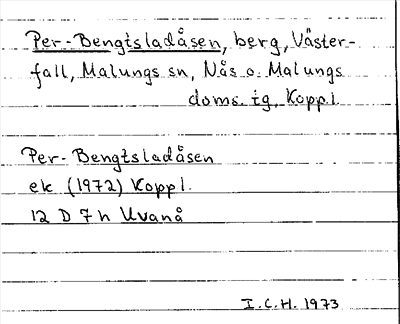 Per-Bengtsladåsen, berg, Väster-
fall, Malungs sn, Nås o. Malungs
doms. tg, Koppl.
Per-Bengtsladåsen
ek (1972) Koppl.
12 D 7 h Uvanå
I.C.H. 1973